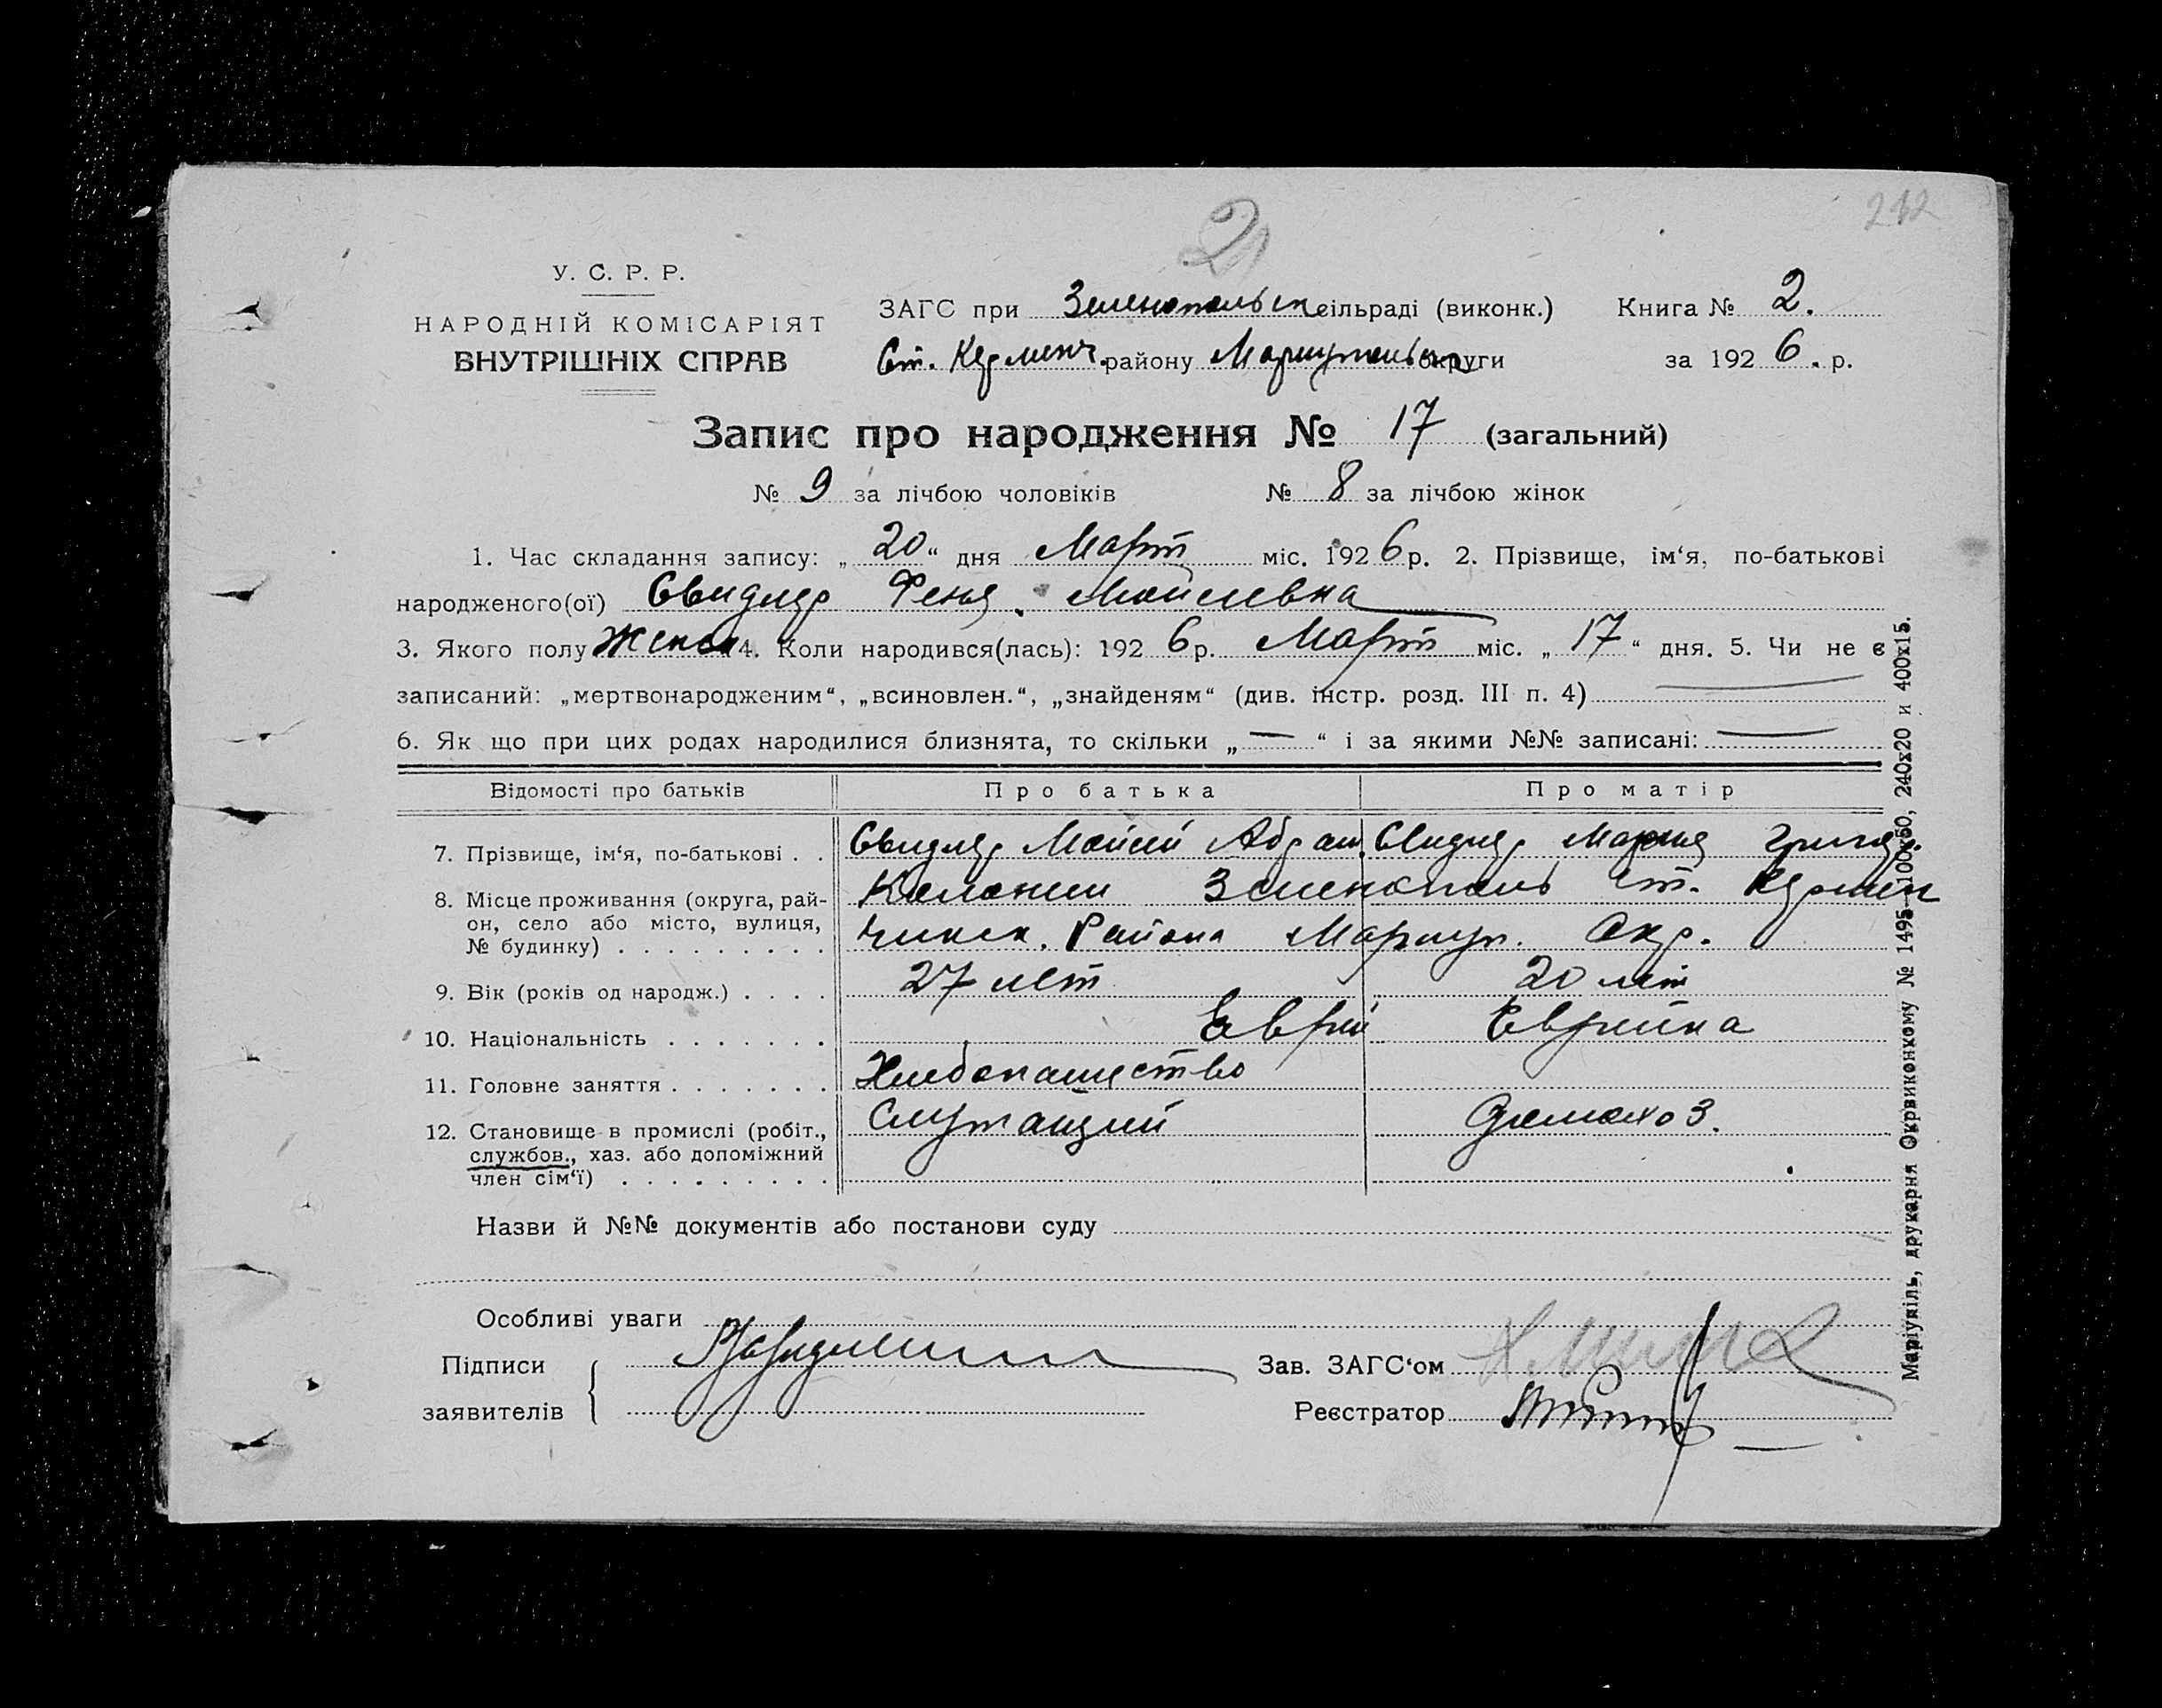 212
2
У. С. Р. Р.
НАРОДНІЙ КОМІСАРІЯТ
ВНУТРІШНІХ СПРАВ
ЗАГС при Зеленопольск сільраді (виконк.) Книга № 2.
Ст. Керменч. району Мариупольск округи за 192 6. р.
Запис про народження № 17 (загальний)
№ 9 за лічбою чоловіків № 8 за лічбою жінок
1. Час складання запису: „ 20 “ дня Март міс. 192 6 р. 2. Прізвище, ім‘я, по-батькові
народженого(ої) Свидлер Феня Мойсеевна
3. Якого полу Женск 4. Коли народився(лась): 192 6 р. Март міс. „ 17 “ дня. 5. Чи не є
записаний: „мертвонародженим“, „всиновлен.“, „знайденям“ (див. інстр. розд. III п. 4) —
6. Як що при цих родах народилися близнята, то скільки „ — “ і за якими №№ записані: —
Відомості про батьків Про батька Про матір
7. Прізвище, ім‘я, по-батькові . . Свидлер Мойсей Абрам. Свидлер Мария Григор.
8. Місце проживання (округа, рай- Колонии Зеленополь Ст. Кермен
он, село або місто, вулиця,
№ будинку) . . . . . . . . . чикск. Района Мариуп. Окр.
9. Вік (років од народж.) . . . . 27 лет 20 лет
10. Національність . . . . . . . Еврей Еврейка
11. Головне заняття . . . . . . . Хлебопашество
12. Становище в промислі (робіт., Служащий Домохоз.
службов., хаз. або допоміжний
член сім‘ї) . . . . . . . . .
Назви й №№ документів або постанови суду
Особливі уваги
Підписи
заявителів
Зав. ЗАГС‘ом
Реєстратор
Маріупіль, друкарня Окрвиконкому № 1495—100х50, 240х20 и 400х15.